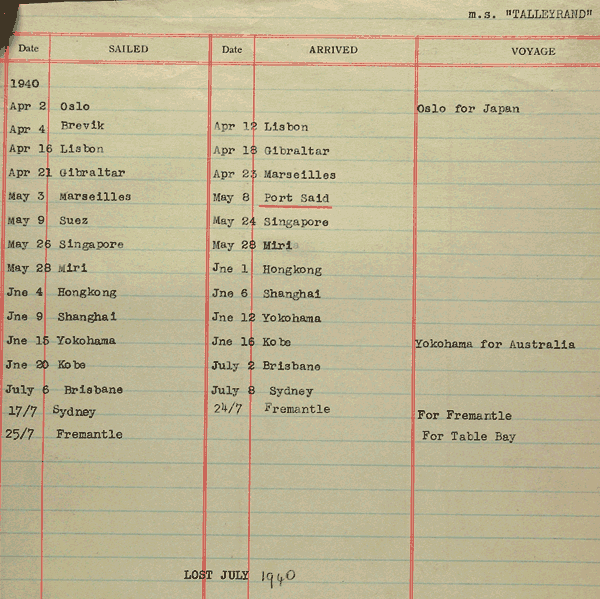 m.s. "TALLEYRAND"
Date SAILED Date ARRIVED VOYAGE
1940
Apr 2 Oslo Oslo for Japan
Apr 4 Brevik Apr 12 Lisbon
Apr 16 Lisbon Apr 18 Gibraltar
Apr 21 Gibraltar Apr 23 Marseilles
May 3 Marseilles May 8 Port Said
May 9 Suez May 24 Singapore
May 26 Singapore May 28 Miri
May 28 Miri Jne 1 Hongkong
Jne 4 Hongkong Jne 6 Shanghai
Jne 9 Shanghai Jne 12 Yokohama
Jne 15 Yokohama Jne 16 Kobe Yokohama for Australia
Jne 20 Kobe July 2 Brisbane
July 6 Brisbane July 8 Sydney
17/7 Sydney 24/7 Fremantle For Fremantle
25/7 Fremantle For Table Bay
LOST JULY 1940